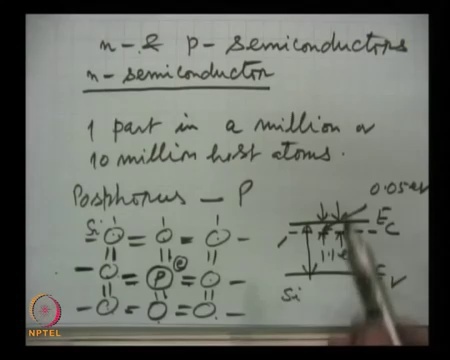 n- & p- semiconductors
n- semiconductor
1 part in a million or
10 million host atoms.
Posphorus - P
0.05 eV
Si
E c
P e
1.1 e
Si
v
NPTEL